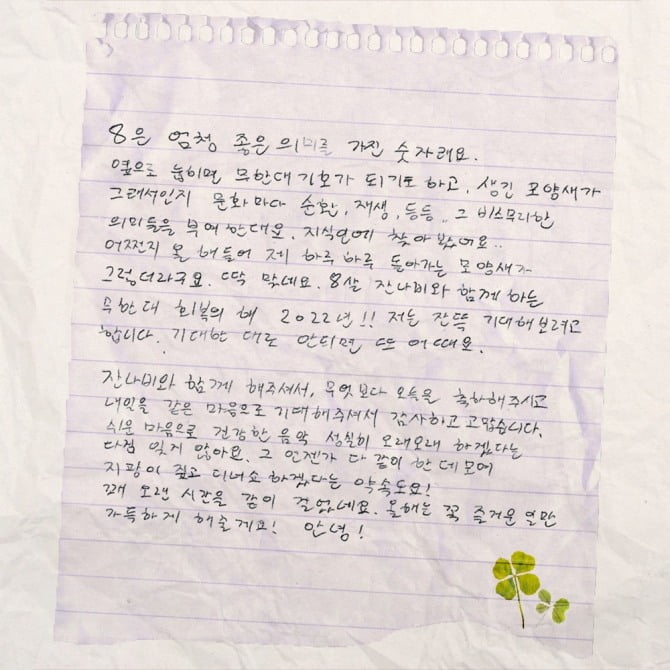 8은 엄청 좋은 의미를 가진 숫자래요.
옆으로 눕히면 무한대기호가 되기도 하고, 생긴 모양새가
그래서인지 문화마다 순환, 재생, 등등.. 그 비스무리한
의미들을 부여한대요. 지식인에 찾아봤어요..
어쩐지 올 해들어 제 하루 하루 돌아가는 모양새가
그렇더라구요. 딱 맞네요. 8살 잔나비와 함께 하는
무한대 회복의 해 2022년!! 저는 잔뜩 기대해보려고
합니다. 기대한 대로 안되면 또 어때요.
잔나비와 함께 해주셔서, 무엇보다 오늘을 축하해주시고
내일을 같은 마음으로 기대해주셔서 감사하고 고맙습니다.
쉬운 마음으로 건강한 음악 성실히 오래오래 하겠다는
다짐 잊지 않아요. 그 언젠가 다 같이 한 데 모여
지팡이 짚고 디너쇼 하겠다는 약속도요!
꽤 오랜 시간을 같이 걸었네요. 올해는 꼭 즐거운 일만
가득하게 해줄게요! 안녕!